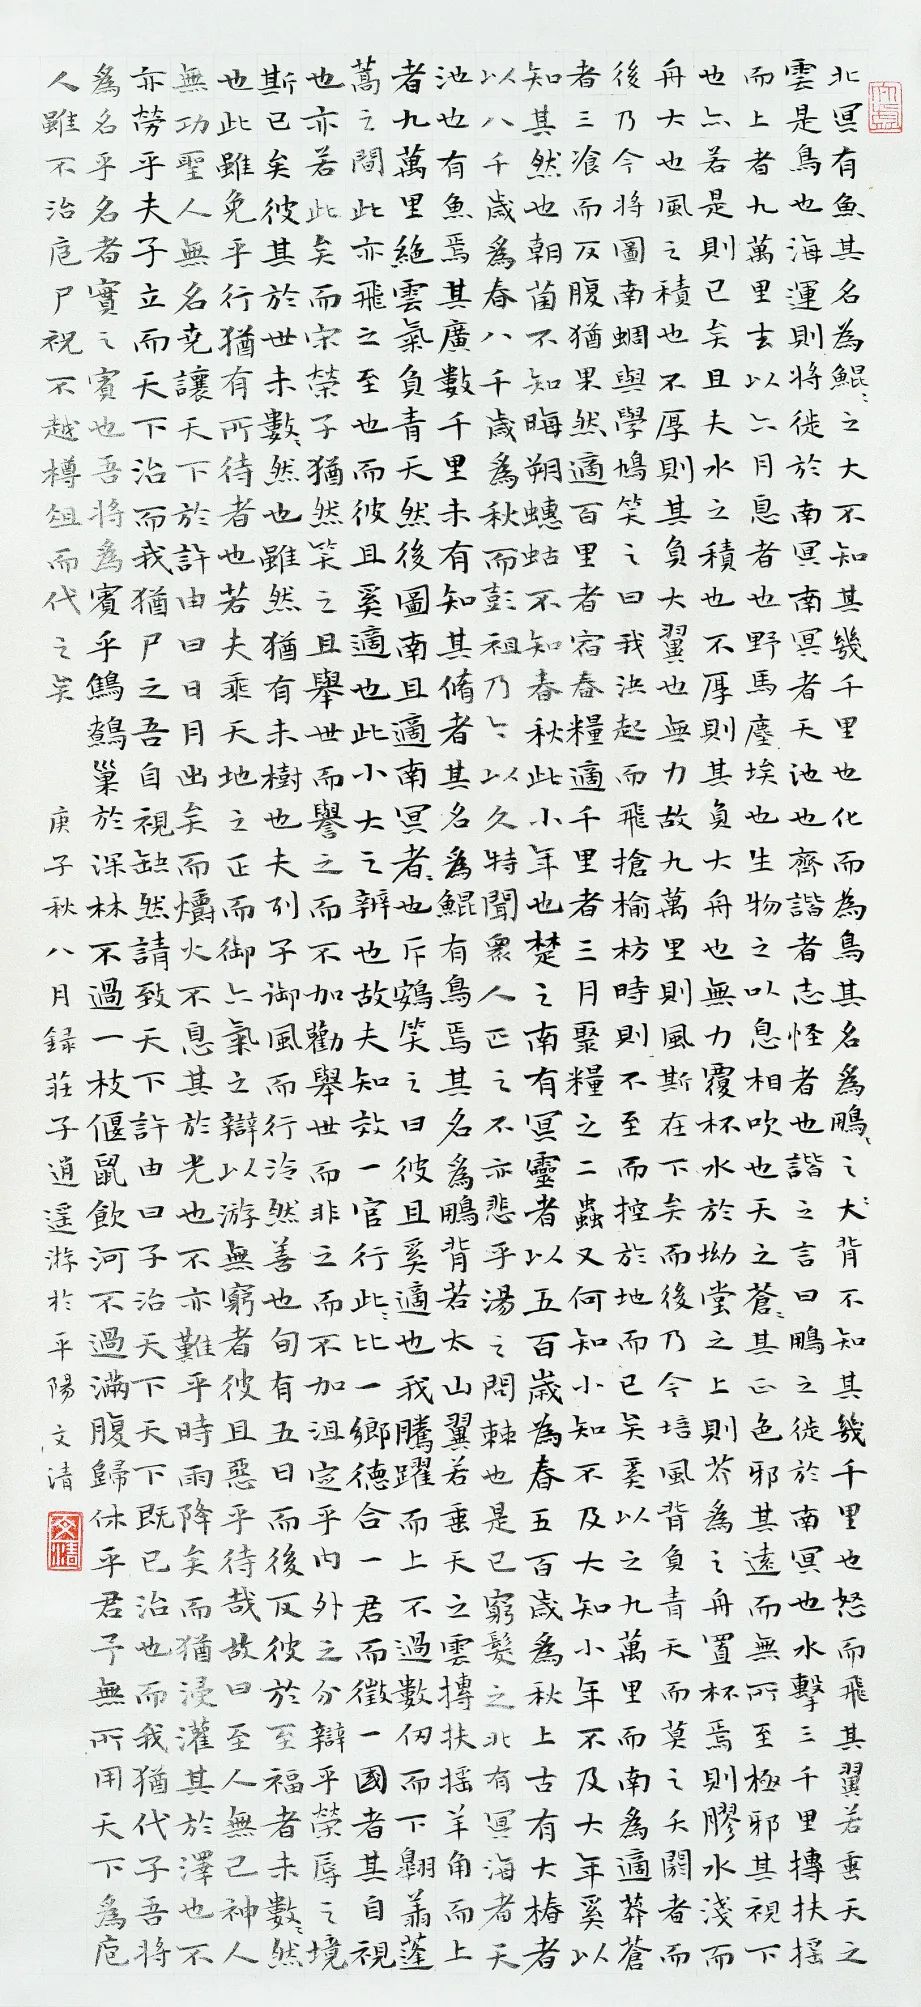 北冥有魚其名為鯤〻之大不知其幾千里也化而為鳥其名為鵬〻之大背不知其幾千里也怒而飛其翼若垂天之
雲是鳥也海運則將徙於南冥南冥者天池也齊諧者志怪者也諧之言曰鵬之徙於南冥也水擊三千里摶扶搖
而上者九萬里去以六月息者也野馬塵埃也生物之以息相吹也天之蒼〻其正色邪其遠而無所至極邪其視下
也亦若是則已矣且夫水之積也不厚則其負大舟也無力覆杯水於坳堂之上則芥為之舟置杯焉則膠水淺而
舟大也風之積也不厚則其負大翼也無力故九萬里則風斯在下矣而後乃今培風背負青天而莫之夭閼者而
後乃今將圖南蜩與學鳩笑之曰我決起而飛搶榆枋時則不至而控於地而已矣奚以之九萬里而南為適莽蒼
者三飡而反腹猶果然適百里者宿舂糧適千里者三月聚糧之二蟲又何知小知不及大知小年不及大年奚以
知其然也朝菌不知晦朔蟪蛄不知春秋此小年也楚之南有冥靈者以五百歲為春五百歲為秋上古有大椿者
以八千歲為春八千歲為秋而彭祖乃今以久特聞眾人匹之不亦悲乎湯之問棘也是已窮髮之北有冥海者天
池也有魚焉其廣數千里未有知其脩者其名為鯤有鳥焉其名為鵬背若太山翼若垂天之雲摶扶搖羊角而上
者九萬里絕雲氣負青天然後圖南且適南冥者〻也斥鴳笑之曰彼且奚適也我騰躍而上不過數仞而下翱翔蓬
蒿之間此亦飛之至也而彼且奚適也此小大之辯也故夫知效一官行此〻比一鄉德合一君而徵一國者其自視
也亦若此矣而宋榮子猶然笑之且舉世而譽之而不加勸舉世而非之而不加沮定乎內外之分辯乎榮辱之境
斯已矣彼其於世未數〻然也雖然猶有未樹也夫列子御風而行泠然善也旬有五日而後反彼於至福者未數〻然
也此雖免乎行猶有所待者也若夫乘天地之正而御六氣之辯以游無窮者彼且惡乎待哉故曰至人無己神人
無功聖人無名堯讓天下於許由曰日月出矣而爝火不息其於光也不亦難乎時雨降矣而猶浸灌其於澤也不
亦勞乎夫子立而天下治而我猶尸之吾自視缺然請致天下許由曰子治天下天下既已治也而我猶代子吾將
為名乎名者實之賓也吾將為賓乎鷦鷯巢於深林不過一枝偃鼠飲河不過滿腹歸休乎君子無所用天下為庖
人雖不治庖尸祝不越樽俎而代之矣 庚子秋八月錄莊子逍遙游於平陽文清
文清